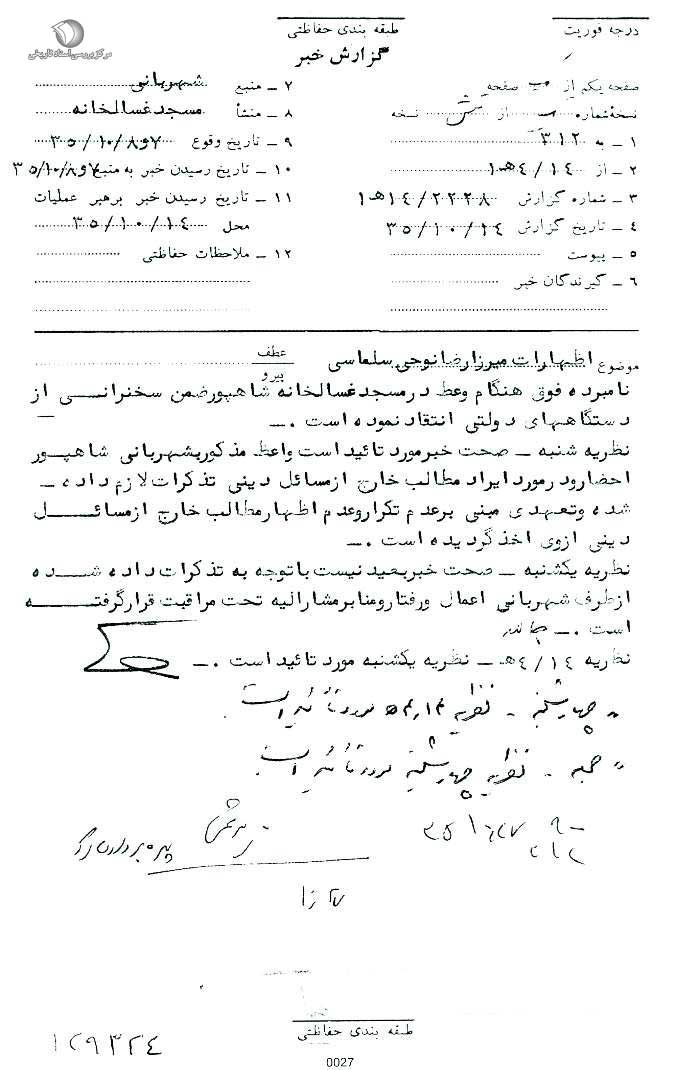 مرکز بررسی اسناد تاریخی
درجه فوریت
طبقه بندی حفاظتی
گزارش خبر
صفحه یکم از صفحه
نسخه شماره از نسخه
۱ ـ به ۳۱۲
۲ ـ از ۴/۱۴هـ۱
۳ ـ شماره گزارش ۲۲۲۸/۱۴هـ۱
۴ ـ تاریخ گزارش ۳۵/۱۰/۱۴
۵ ـ پیوست
۶ ـ گیرندگان خبر
۷ ـ منبع شهربانی
۸ ـ منشأ مسجدغسالخانه
۹ ـ تاریخ وقوع ۳۵/۱۰/۸و۷
۱۰ ـ تاریخ رسیدن خبر به منبع ۳۵/۱۰/۸و۷
۱۱ ـ تاریخ رسیدن خبر برهبر عملیات
محل ۳۵/۱۰/۱۴
۱۲ ـ ملاحظات حفاظتی
موضوع اظهارات میرزارضانوحی سلماسی
عطف
پیرو
نامبرده فوق هنگام وعظ درمسجدغسالخانه شاهپورضمن سخنرانی از
دستگاههای دولتی انتقادنموده است .ـ
نظریه شنبه ـ صحت خبرمورد تائیداست واعظ مذکوربشهربانی شاهپور
احضارودرمورد ایراد مطالب خارج ازمسائل دینی تذکرات لازم داده ـ
شده وتعهدی مبنی برعدم تکراروعدم اظهارمطالب خارج ازمسائل
دینی ازوی اخذگردیده است .ـ
نظریه یکشنبه ـ صحت خبربعیدنیست باتوجه به تذکرات داده شده
ازطرف شهربانی اعمال ورفتارومنابرمشارالیه تحت مراقبت قرارگرفته
است .ـ
نظریه ۴/۱۴هـ ـ نظریه یکشنبه مورد تائیداست .ـ
" چهارشنبه ـ نظریه ۴/۱۴هـ مورد تائید است.
" جمعه ـ نظریه چهارشنبه مورد تائید است.
طبقه بندی حفاظتی
۱۲۹۳۲۴
0027